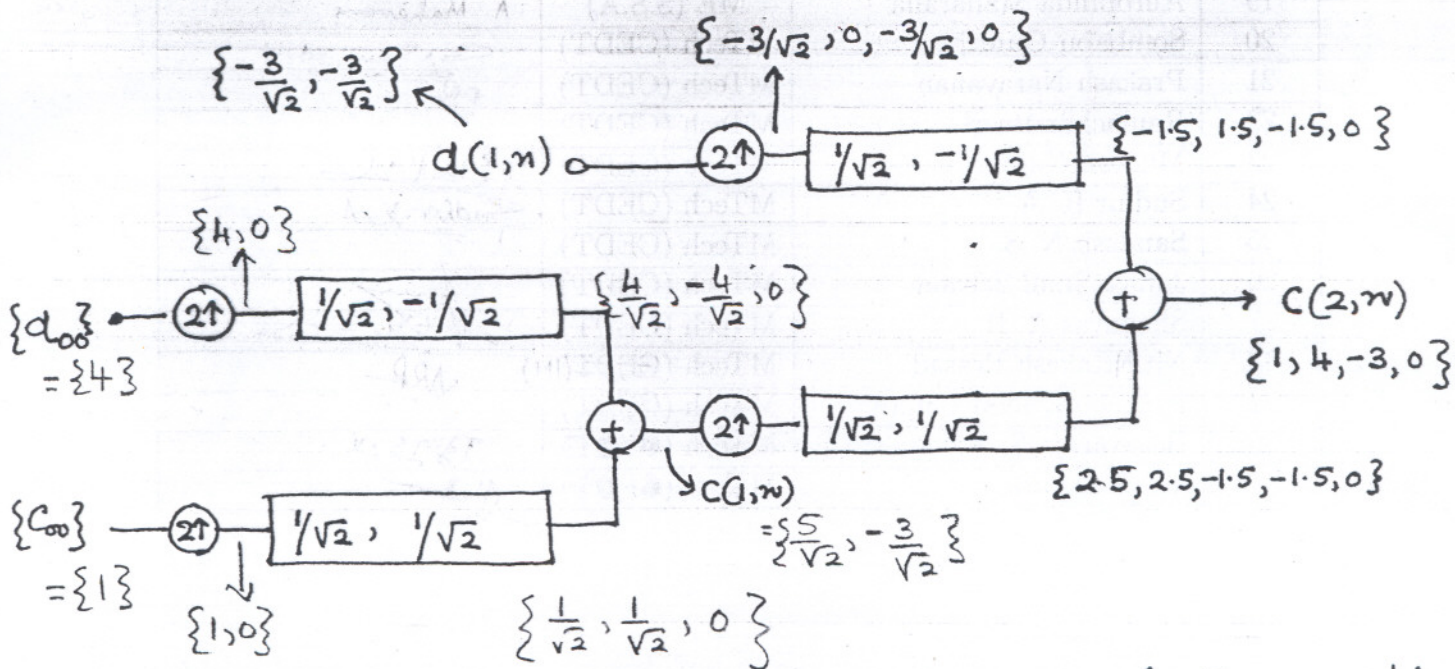 {-3/√2, 0, -3/√2, 0}
{-3/√2, -3/√2}
d(1,n)
2↑
1/√2, -1/√2
{-1.5, 1.5, -1.5, 0}
{4,0}
{d₀₀}
={4}
2↑
1/√2, -1/√2
{4/√2, -4/√2, 0}
+
C(2,n)
{1, 4, -3, 0}
+
2↑
1/√2, 1/√2
{2.5, 2.5, -1.5, -1.5, 0}
C(1,n)
={5/√2, -3/√2}
{C₀₀}
={1}
2↑
1/√2, 1/√2
{1,0}
{1/√2, 1/√2, 0}